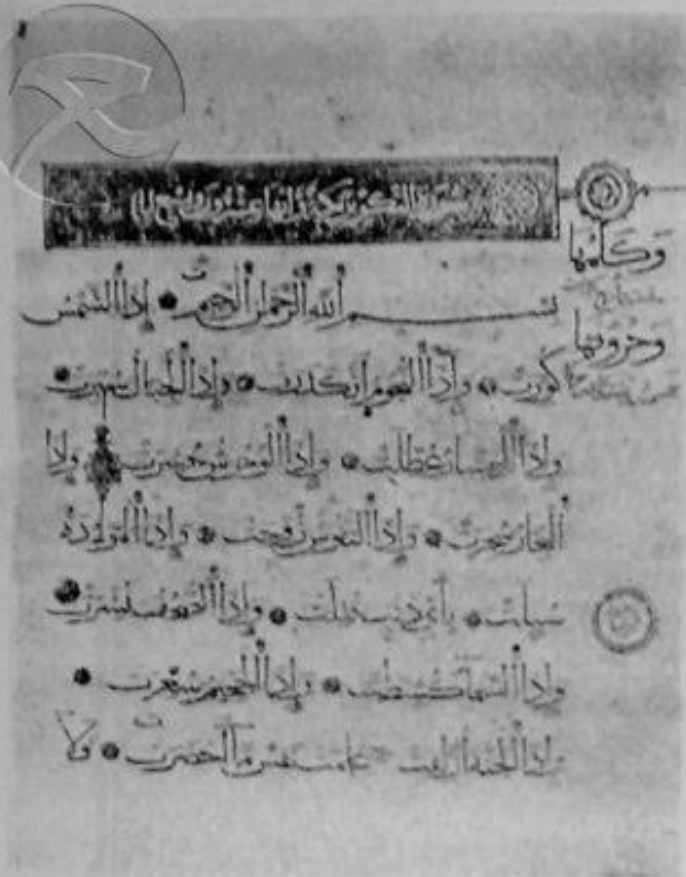 سورة التكوير مكية وآيها عشرون وتسع آيات
وكلمها
وحروفها
بسم الله الرحمن الرحيم إذا الشمس
كورت وإذا النجوم انكدرت وإذا الجبال سيرت
وإذا العشار عطلت وإذا الوحوش حشرت وإذا
البحار سجرت وإذا النفوس زوجت وإذا الموءدة
سيلت بأي ذنب قتلت وإذا الصحف نشرت
وإذا السماء كشطت وإذا الجحيم سعرت
وإذا الجنة أزلفت علمت نفس ما أحضرت فلا